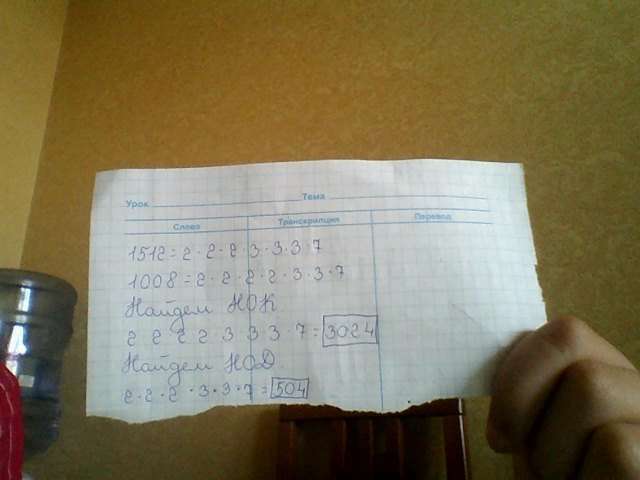 Урок Тема
Слово Транскрипция Перевод
1512 = 2 · 2 · 2 · 3 · 3 · 3 · 7
1008 = 2 · 2 · 2 · 2 · 3 · 3 · 7
Найдем НОК
2 2 2 2 3 3 3 · 7 = 3024
Найдем НОД
2 · 2 · 2 · 3 · 3 · 7 = 504